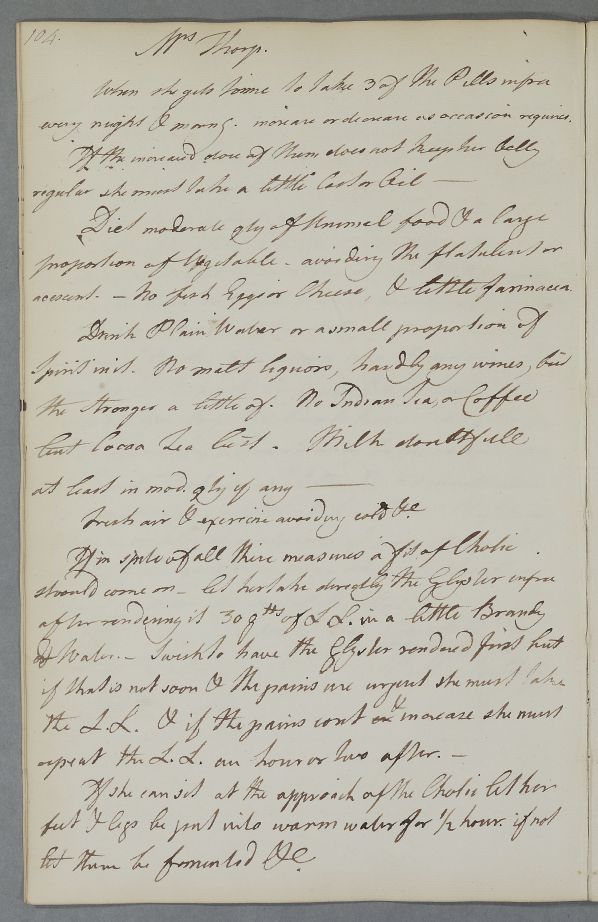 104.
Mrs Thorp.
When she gets home to take 3 of the Pills infra
every night & morng. increase or decrease as occasion requires.
If the increased dose of them does not keep her belly
regular she must take a little Castor Oil —
Diet moderate qty of Animal food & a large
proportion of Vegetable - avoiding the flatulent or
acescent. — No fish Eggs or Cheese, & little farinacea.
Drink Plain Water or a small proportion of
Spirit in it. No malt liquors, hardly any wines, but
the stronger a little of. No Indian Tea, or Coffee
but Cocoa Tea best. Milk doubtfull
at least in mod. qty if any —
Fresh air & exercise avoiding cold &c
If in spite of all these measures a fit of Cholic
should come on - let her take directly the Glyster infra
after rendering it 30 gtts of L.L. in a little Brandy
& Water. - I wish to have the Glyster rendered first but
if that is not soon & the pains are urgent she must take
the L.L. & if the pains cont or increase she must
repeat the L.L. an hour or two after. —
If she can sit at the approach of the Cholic let her
feet & legs be put into warm water for 1/2 hour. if not
let them be fomented &c